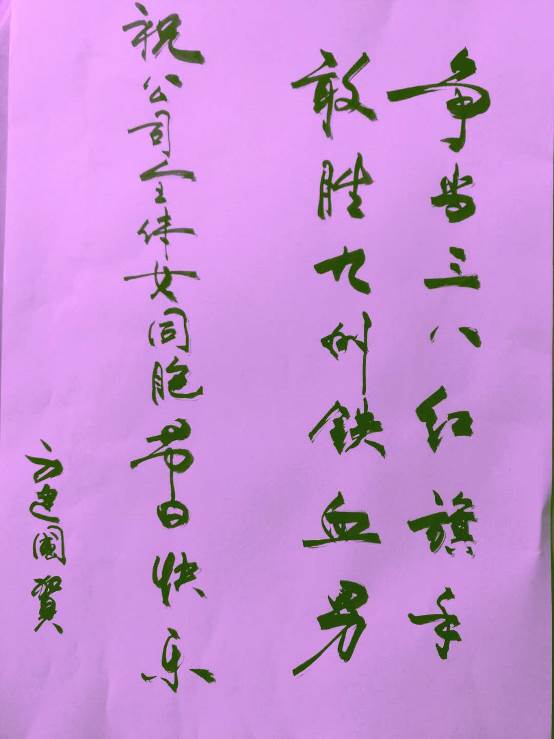 争当三八红旗手
敢胜九州铁血男
祝公司全体女同胞节日快乐
方建国贺